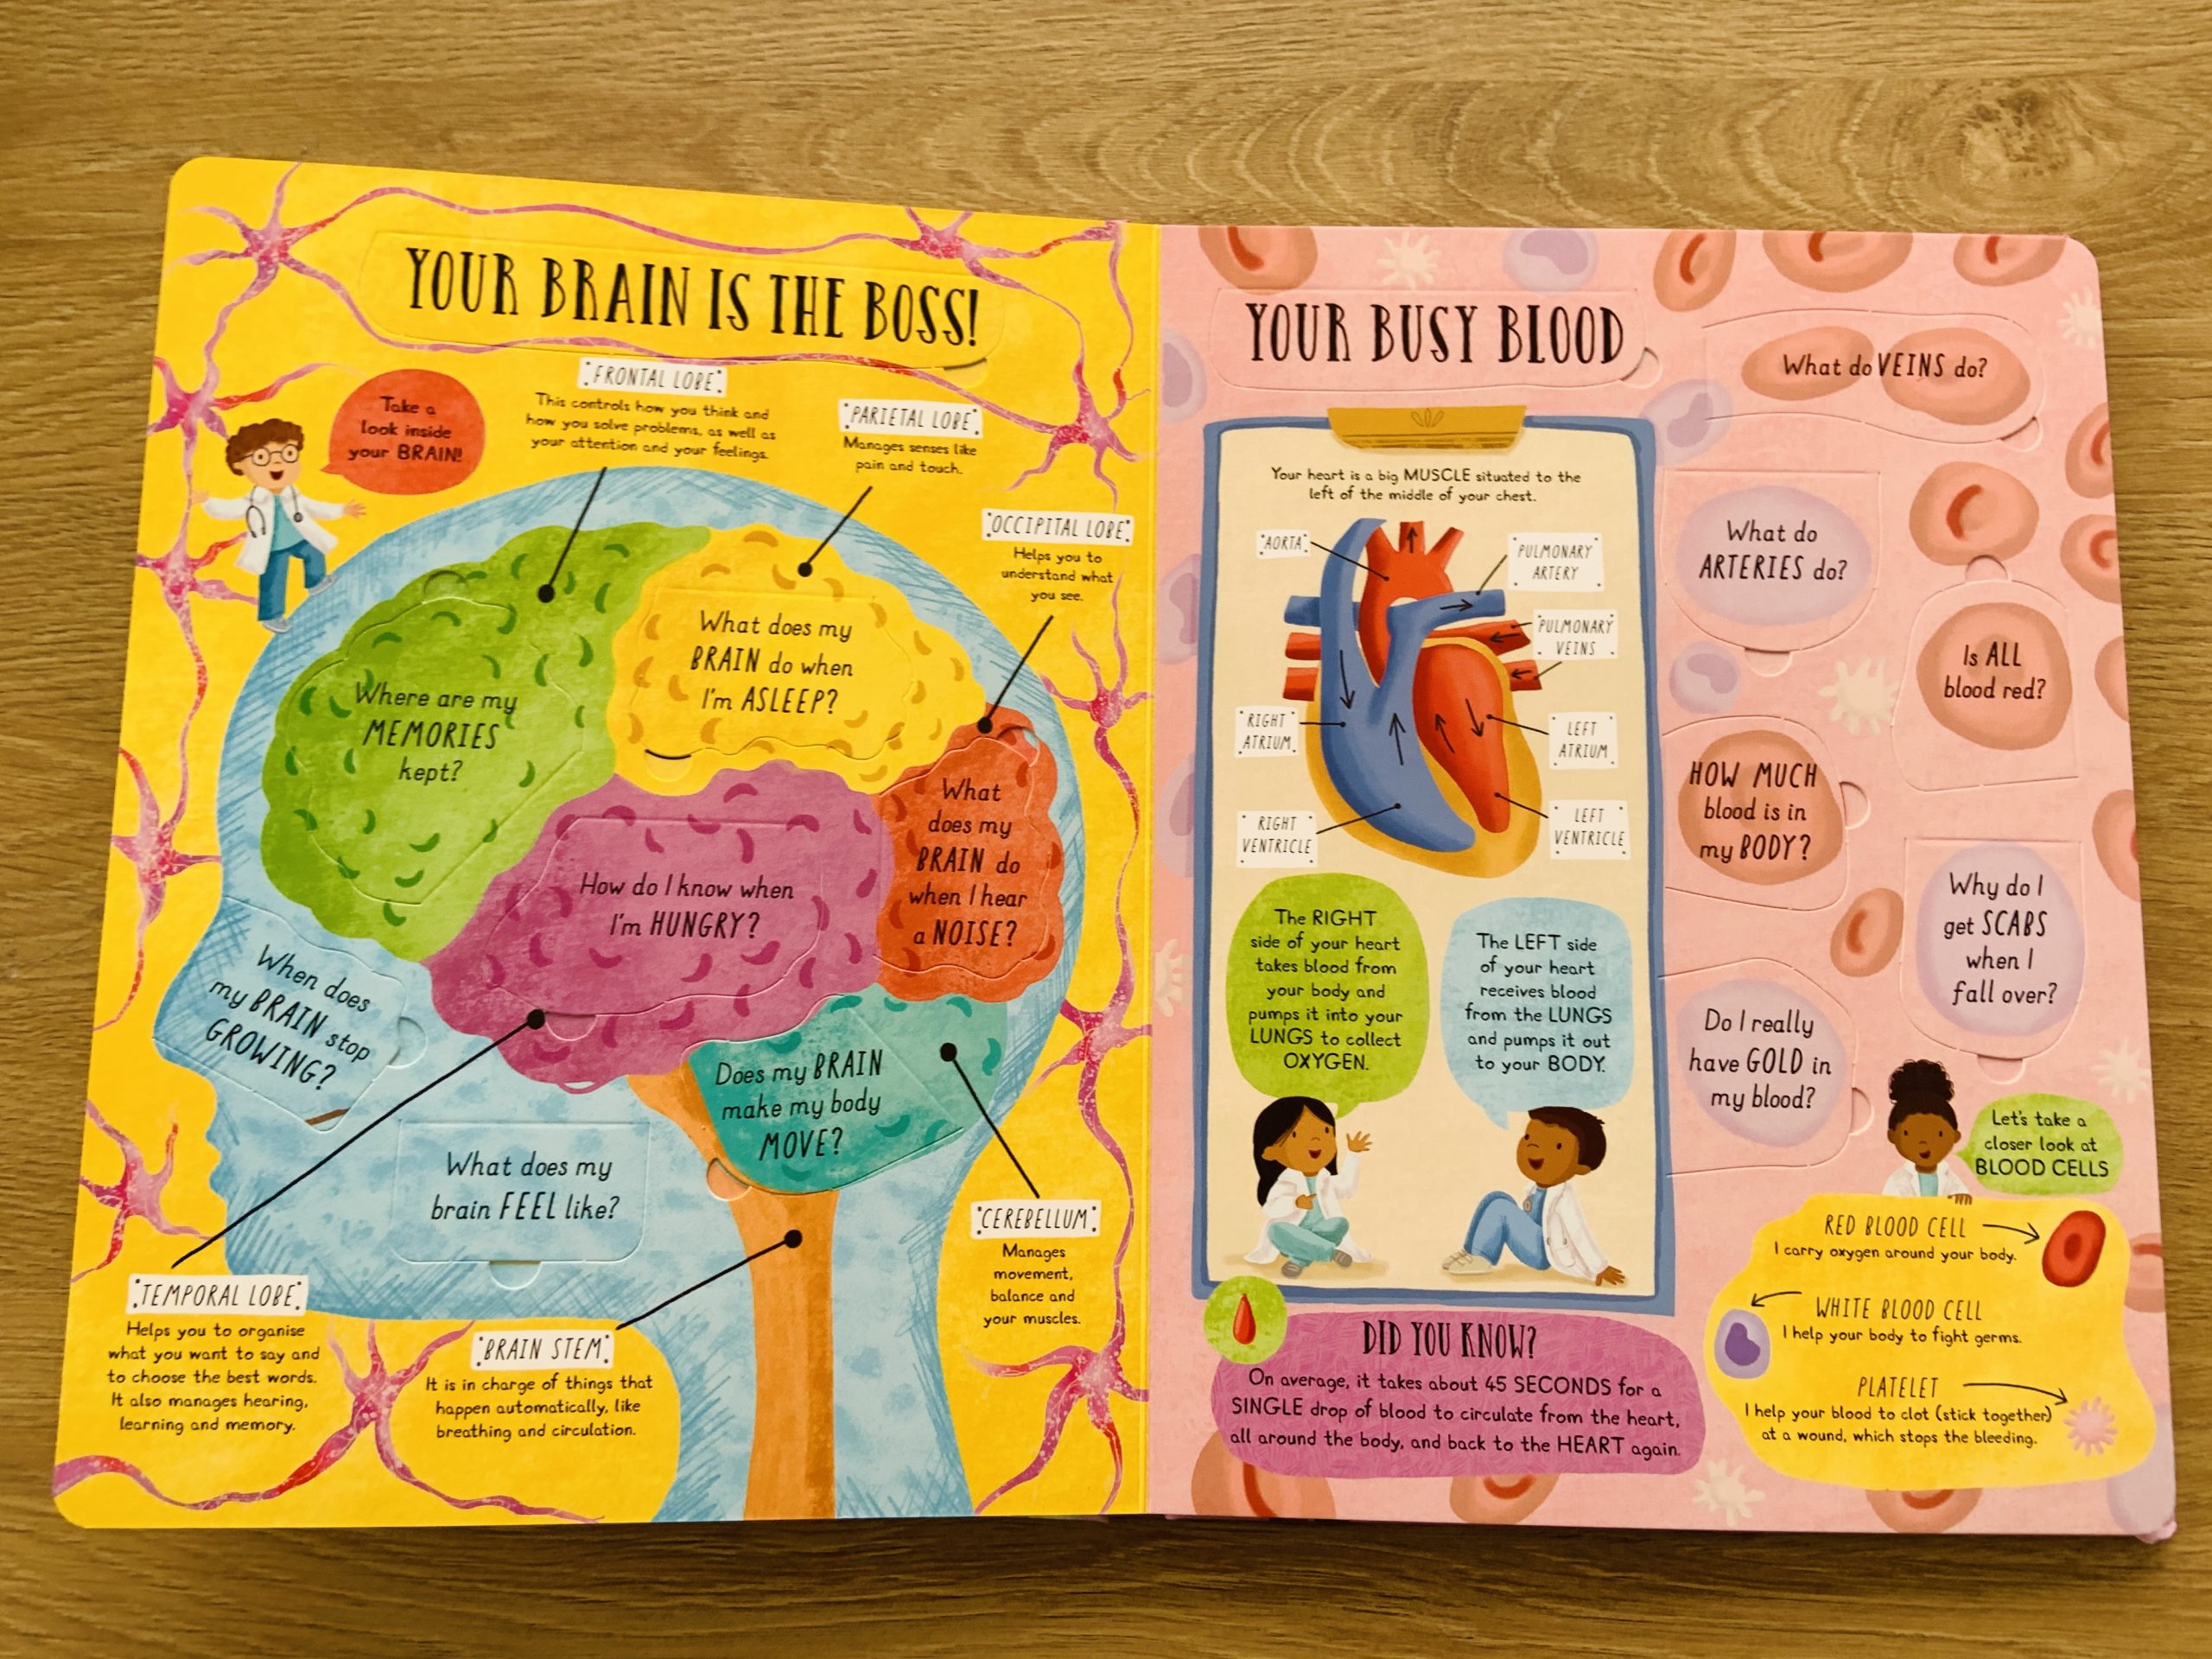 YOUR BRAIN IS THE BOSS!
Take a
look inside
your BRAIN!
FRONTAL LOBE
This controls how you think and
how you solve problems, as well as
your attention and your feelings.
PARIETAL LOBE
Manages senses like
pain and touch.
OCCIPITAL LOBE
Helps you to
understand what
you see.
Where are my
MEMORIES
kept?
What does my
BRAIN do when
I'm ASLEEP?
What
does my
BRAIN do
when I hear
a NOISE?
How do I know when
I'm HUNGRY?
When does
my BRAIN stop
GROWING?
Does my BRAIN
make my body
MOVE?
What does my
brain FEEL like?
CEREBELLUM
Manages
movement,
balance and
your muscles.
TEMPORAL LOBE
Helps you to organise
what you want to say and
to choose the best words.
It also manages hearing,
learning and memory.
BRAIN STEM
It is in charge of things that
happen automatically, like
breathing and circulation.
YOUR BUSY BLOOD
Your heart is a big MUSCLE situated to the
left of the middle of your chest.
AORTA
PULMONARY
ARTERY
PULMONARY
VEINS
RIGHT
ATRIUM
LEFT
ATRIUM
RIGHT
VENTRICLE
LEFT
VENTRICLE
The RIGHT
side of your heart
takes blood from
your body and
pumps it into your
LUNGS to collect
OXYGEN.
The LEFT side
of your heart
receives blood
from the LUNGS
and pumps it out
to your BODY.
DID YOU KNOW?
On average, it takes about 45 SECONDS for a
SINGLE drop of blood to circulate from the heart,
all around the body, and back to the HEART again.
What do VEINS do?
What do
ARTERIES do?
Is ALL
blood red?
HOW MUCH
blood is in
my BODY?
Why do I
get SCABS
when I
fall over?
Do I really
have GOLD in
my blood?
Let's take a
closer look at
BLOOD CELLS
RED BLOOD CELL
I carry oxygen around your body.
WHITE BLOOD CELL
I help your body to fight germs.
PLATELET
I help your blood to clot (stick together)
at a wound, which stops the bleeding.